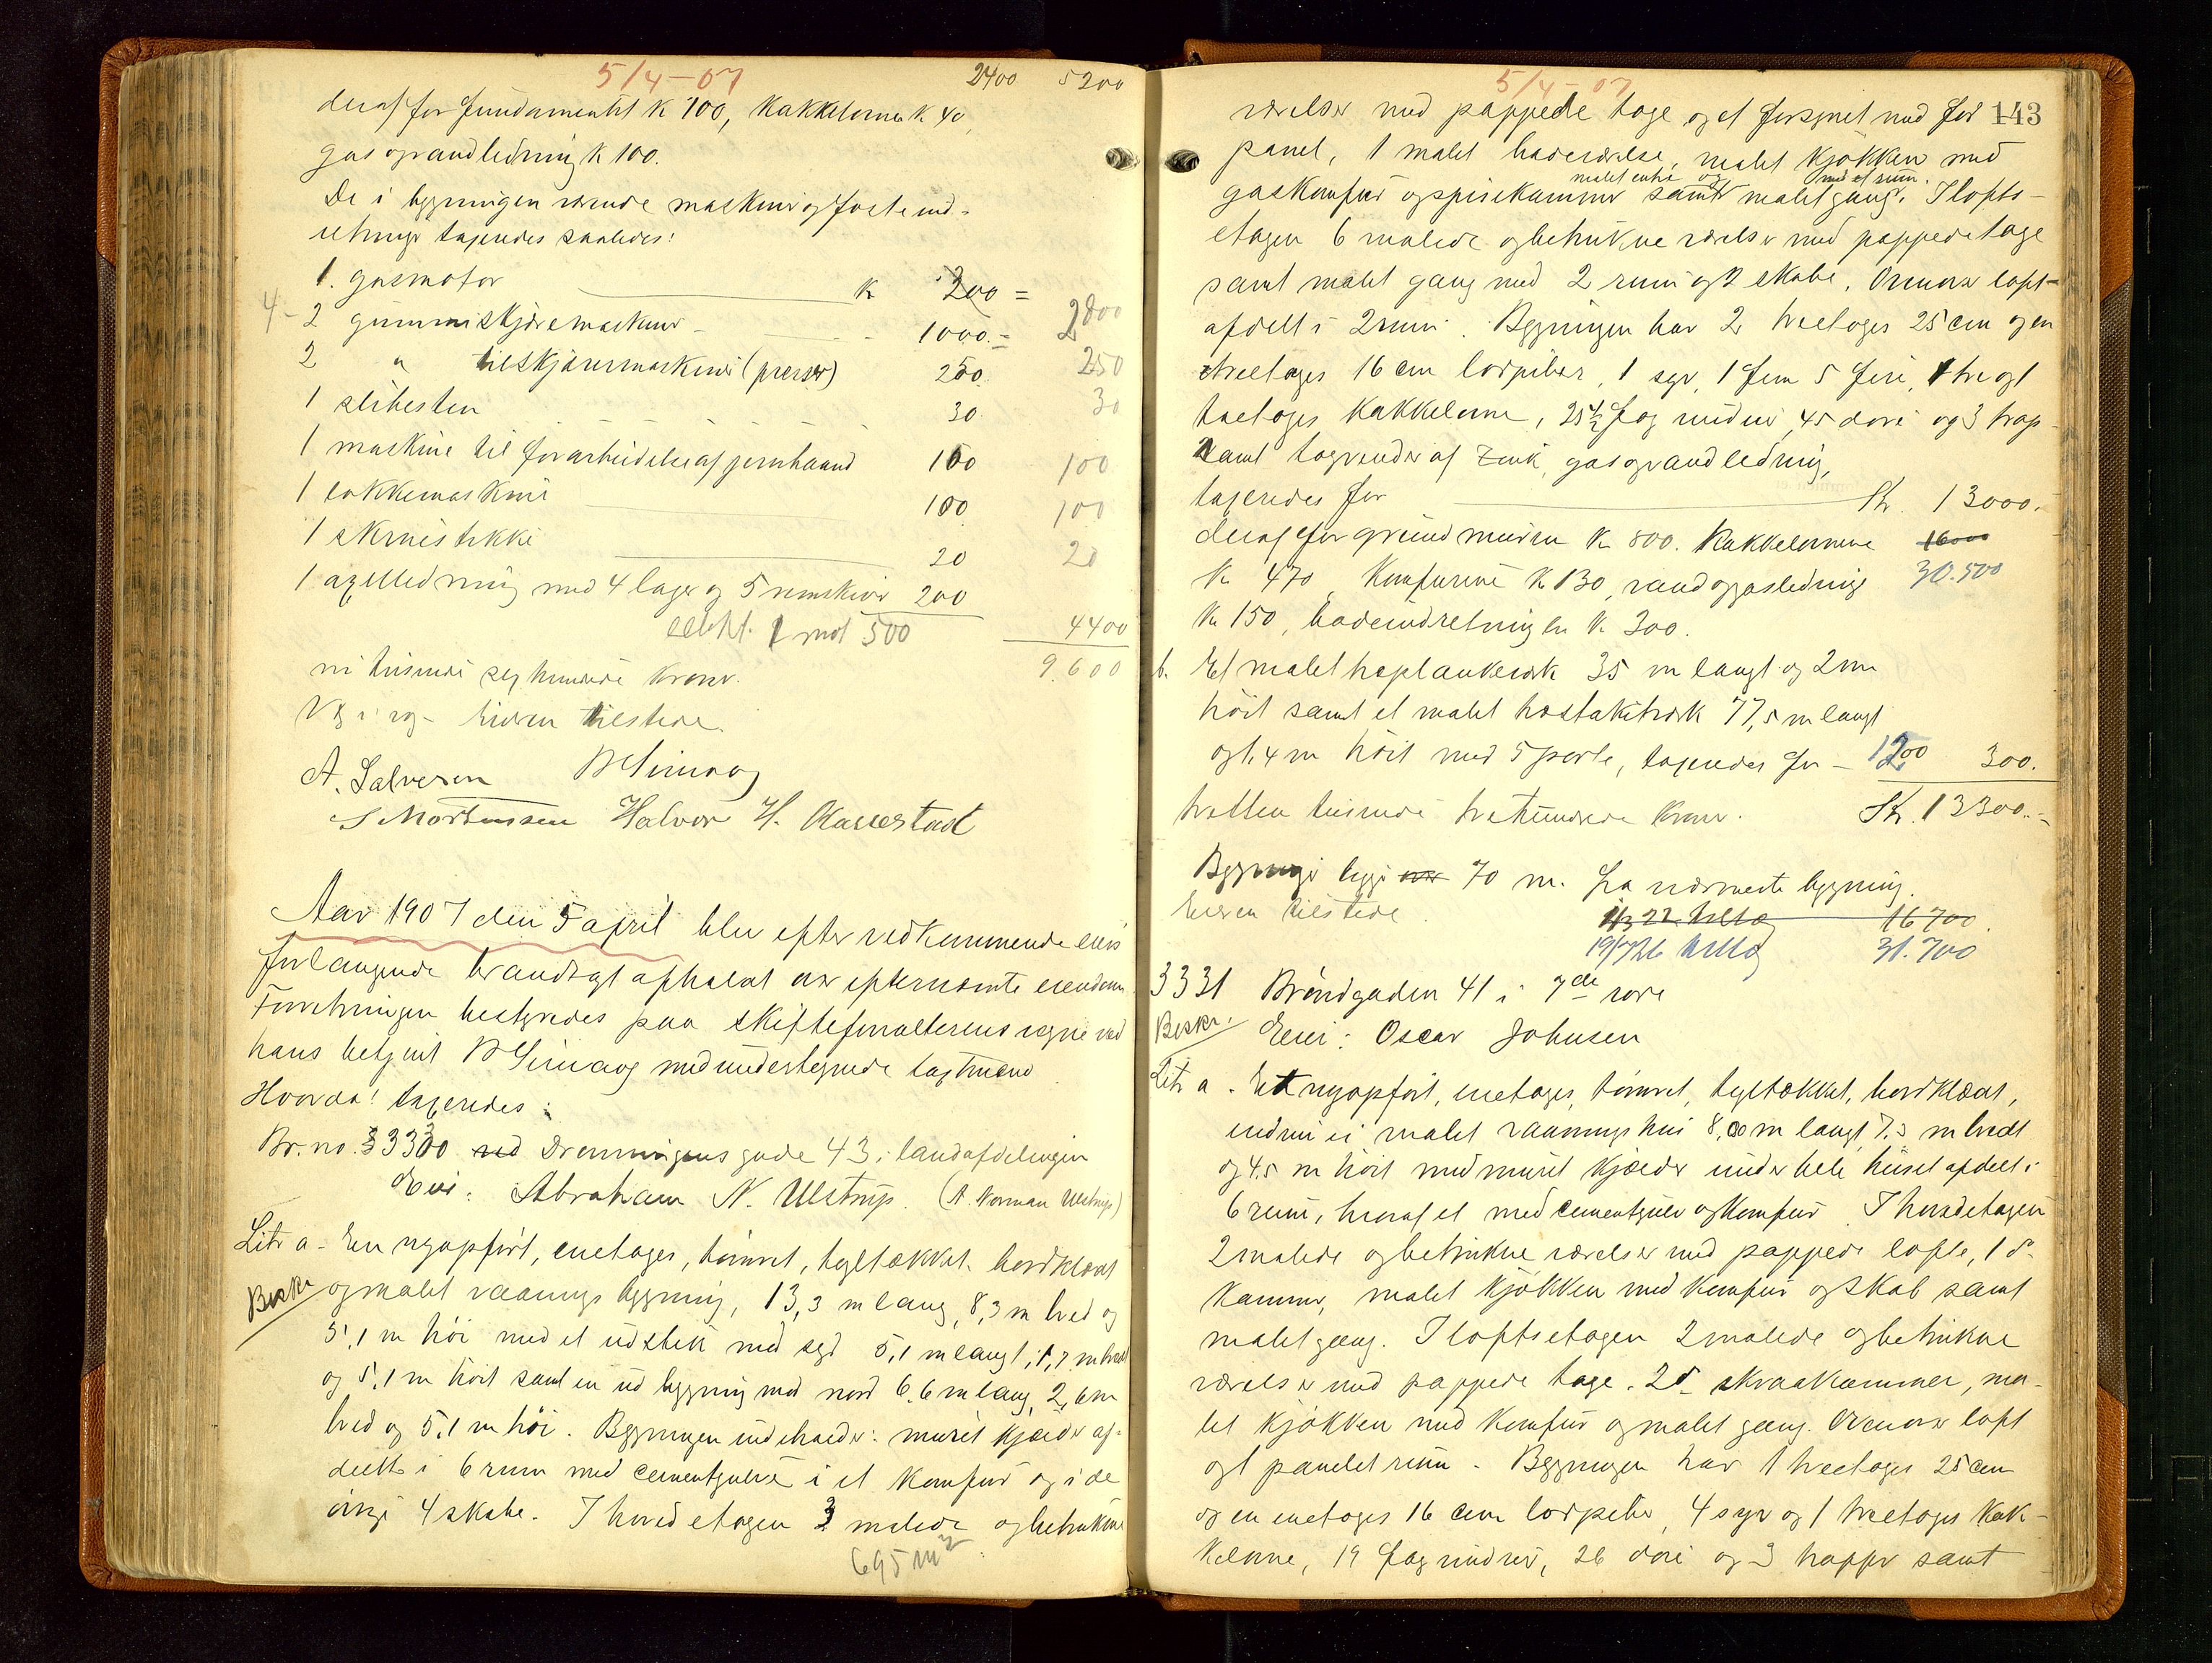 5/4-07
2400 5200
deraf for fundamentet K 100, Kakkelovnen K 40,
gas og vandledning K 100.
De i bygningen værende maskiner og faste ind-
retninger taxeredes saaledes:
1. gasmotor K 200 =
4 - 2 gummiskjæremaskiner - 1000.= 2800
2 " tilskjærermaskiner (presser) 250. 250
1 slibesten 30. 30
1 maskine til forarbeidelse af jernbaand 100 100
1 lokkemaskine 100 100
1 skruestikke 20 20
1 axelledning med 4 lager og 5 remskiver 200
elekt. 1 mot 500 4400
9.600
ni tusinde sex hundrede kroner.
eieren tilstede.
A. Salvesen
S Mortensen Halvor H.
Aar 1907 den 5 april blev efter vedkommende eiers
forlangende brandtaxt afholdt over efternævnte eiendom
Forretningen bestyredes paa skifteforvalterens vegne ved
hans betjent med undertegnede taxtmænd.
Hvorda! taxeredes:
Br. no. 3330 ved Dronningens gade 43 i landafdelingen
Eier: Abraham N. Ulstrup. (A. Norman Ulstrup)
Litr a - En nyopført, enetages, tømret, tegltækket, bordklædt
Beskr og malet vaaningsbygning, 13,3 m lang, 8,3 m bred og
5,1 m høi med et udstik mod syd 5,1 m langt, 1,7 m bredt
og 5,1 m høit samt en udbygning mod nord 6,6 m lang, 2,6 m
bred og 5,1 m høi. Bygningen indeholder: muret kjælder af-
delt i 6 rum med cementgulve i et komfur og i de
øvrige 4 skabe. I hovedetagen 3 malede og betrukne
695 m²
5/4-07
143
værelser med pappede tage og et forsynet med før
panel, 1 malet badeværelse, malet kjøkken med
malet entre og med et rum.
gaskomfur og spisekammer samt malet gang. I lofts-
etagen 6 malede og betrukne værelser med pappede tage
samt malet gang med 2 rum og 2 skabe. Ovenover loft
afdelt i 2 rum. Bygningen har 2 treetages 25 cm og en
treetages 16 cm lodpiber, 1 sex, 1 fem 5 fire, 1 tre og 1
toetages kakkelovne, 25½ fag vinduer, 45 døre og 3 trap-
samt tagrender af zink, gas og vandledning,
taxeredes for Kr. 13000.-
deraf for grundmuren Kr 800. Kakkelovnene 16000
Kr 470, Komfurene Kr 130, vand og gasledning 30.500
Kr 150, badeindretningen Kr 300.
b. Et malet høplankeværk 35 m langt og 2 m
høit samt et malet træstakitværk 77,5 m langt
og 1,4 m høit med 5 porte, taxeredes for - 1200 300.
tretten tusinde trehundrede kroner. Kr. 13300.-
Bygninger ligger over 70 m. fra nærmeste bygning.
Eieren tilstede.
22 tillæg 16700
19/7 26 tillæg 31.700
3331 Brøndgaden 41 i 7de rode
Beskr. Eier: Oscar Johnsen
Litr a. Et nyopført, enetages, tømret, tegltækket, bordklædt,
endnu ei malet vaaningshus 8,00 m langt 7,5 m bredt
og 4,5 m høit med muret kjælder under hele huset afdelt i
6 rum, hvoraf et med cementgulv og komfur. I hovedetagen
2 malede og betrukne værelser med pappede lofte, 1 do
kammer, malet kjøkken med komfur og skab samt
malet gang. I loftsetagen 2 malede og betrukne
værelser med pappede tage. 2 do skraakammer, ma-
let kjøkken med komfur og malet gang. Ovenover loft
og 1 panelet rum. Bygningen har 1 treetages 25 cm
og en enetages 16 cm lodpibe, 4 syv og 1 treetages kak-
kelovne, 19 fag vinduer, 26 døre og 3 trapper samt